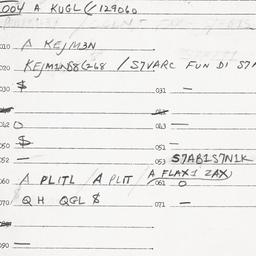 004 A KUGL 129060
010 A KEJM3N
020 KEJM1ND8G268 / S7VARC FUN DI S7
030 $ 031 —
042 O 043 —
050 $ 051 —
052 — 053 S7AB1S7N1K
060 A PLITL / A PLIT / A FLAX1 ZAX
061 O
070 Q H QGL $ 071 —
090 —